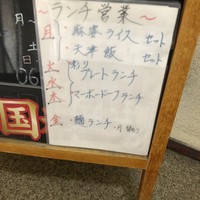 ~ランチ営業~
月 麻婆ライス セット
天津飯 セット
火
水 プレートランチ
木 マーボードーフランチ
金 麺ランチ
月
土
日
国